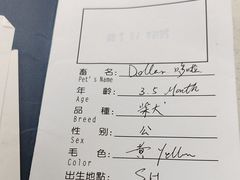 畜名: Dollar 哆啦
Pet's Name
年齡: 3.5 Month
Age
品種: 柴犬
Breed
性別: 公
Sex
毛色: 黃 Yellow
Color
出生地點: SH